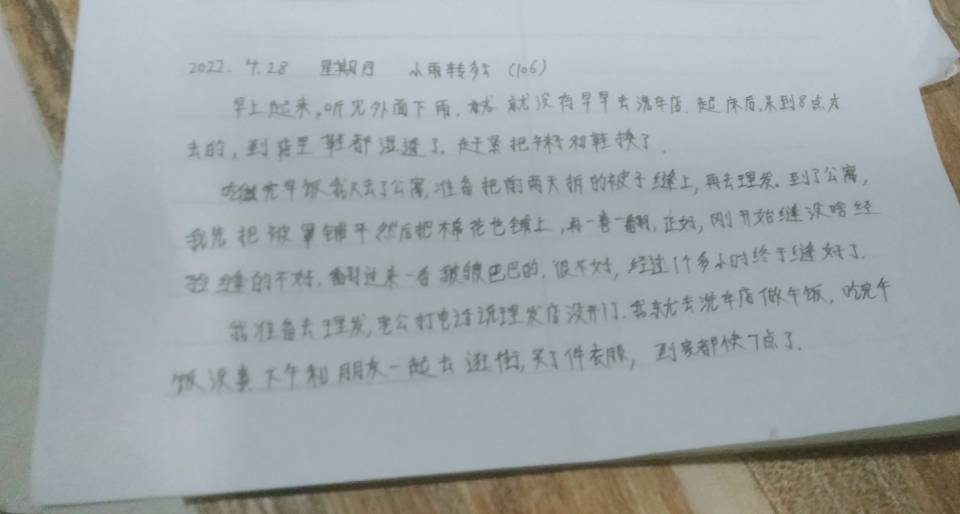 2022. 4.28 星期四 小雨转多云 (106)
早上起来,听见外面下雨,就没有早早去洗车店.起床后,来到8点才
去的,到店里鞋都湿透了.赶紧把袜和鞋换了.
吃完午饭我又去了公寓,准备把前两天拆的被子缝上,再去理发.到了公寓,
我先把被罩铺平然后把棉花也铺上,再一卷一翻,正好,刚开始缝没啥经
验缝的不好,翻过来一看皱皱巴巴的,很不好,经过1个多小时终于缝好了.
我准备去理发,老公打电话说理发店没开门.我就去洗车店做午饭,吃完午
饭没事下午和朋友一起去逛街,买了件衣服,到家都快7点了.